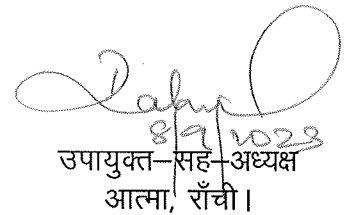 8/9/2023
उपायुक्त–सह–अध्यक्ष
आत्मा, राँची।